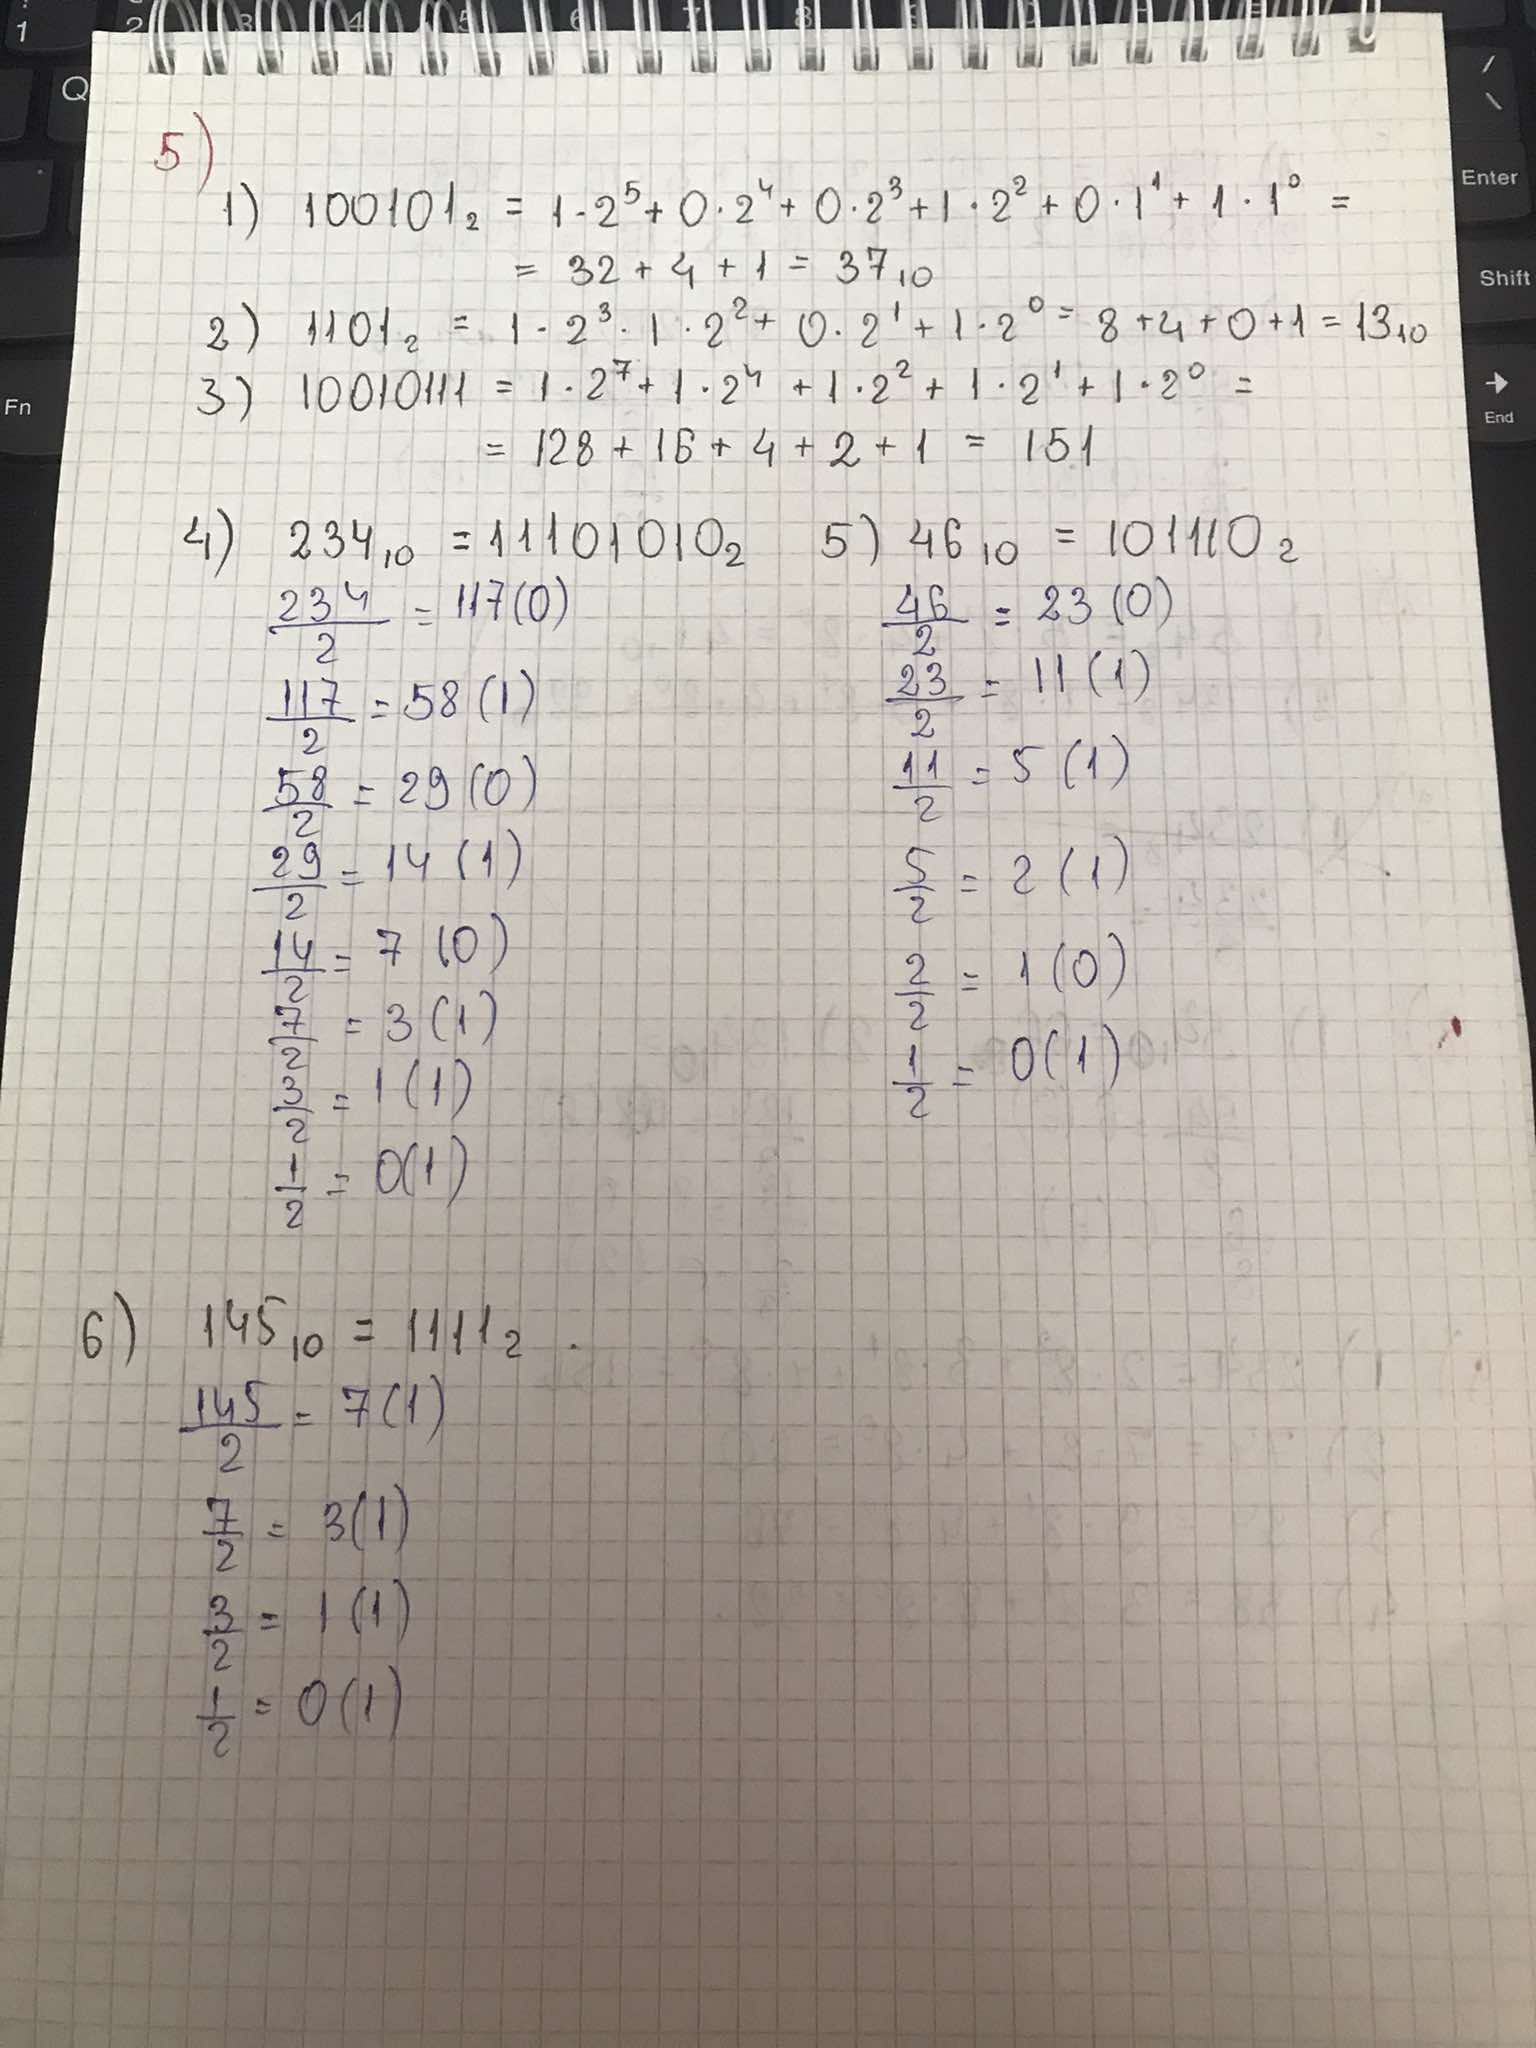 5)
1) 100101₂ = 1·2⁵ + 0·2⁴ + 0·2³ + 1·2² + 0·1¹ + 1·1⁰ =
= 32 + 4 + 1 = 37₁₀
2) 1101₂ = 1·2³·1·2² + 0·2¹ + 1·2⁰ = 8+4+0+1 = 13₁₀
3) 10010111 = 1·2⁷ + 1·2⁴ + 1·2² + 1·2¹ + 1·2⁰ =
= 128 + 16 + 4 + 2 + 1 = 151
4) 234₁₀ = 11101010₂
234/2 = 117(0)
117/2 = 58(1)
58/2 = 29(0)
29/2 = 14(1)
14/2 = 7(0)
7/2 = 3(1)
3/2 = 1(1)
1/2 = 0(1)
5) 46₁₀ = 101110₂
46/2 = 23(0)
23/2 = 11(1)
11/2 = 5(1)
5/2 = 2(1)
2/2 = 1(0)
1/2 = 0(1)
6) 145₁₀ = 1111₂.
145/2 = 7(1)
7/2 = 3(1)
3/2 = 1(1)
1/2 = 0(1)
Q
Enter
Shift
Fn
End